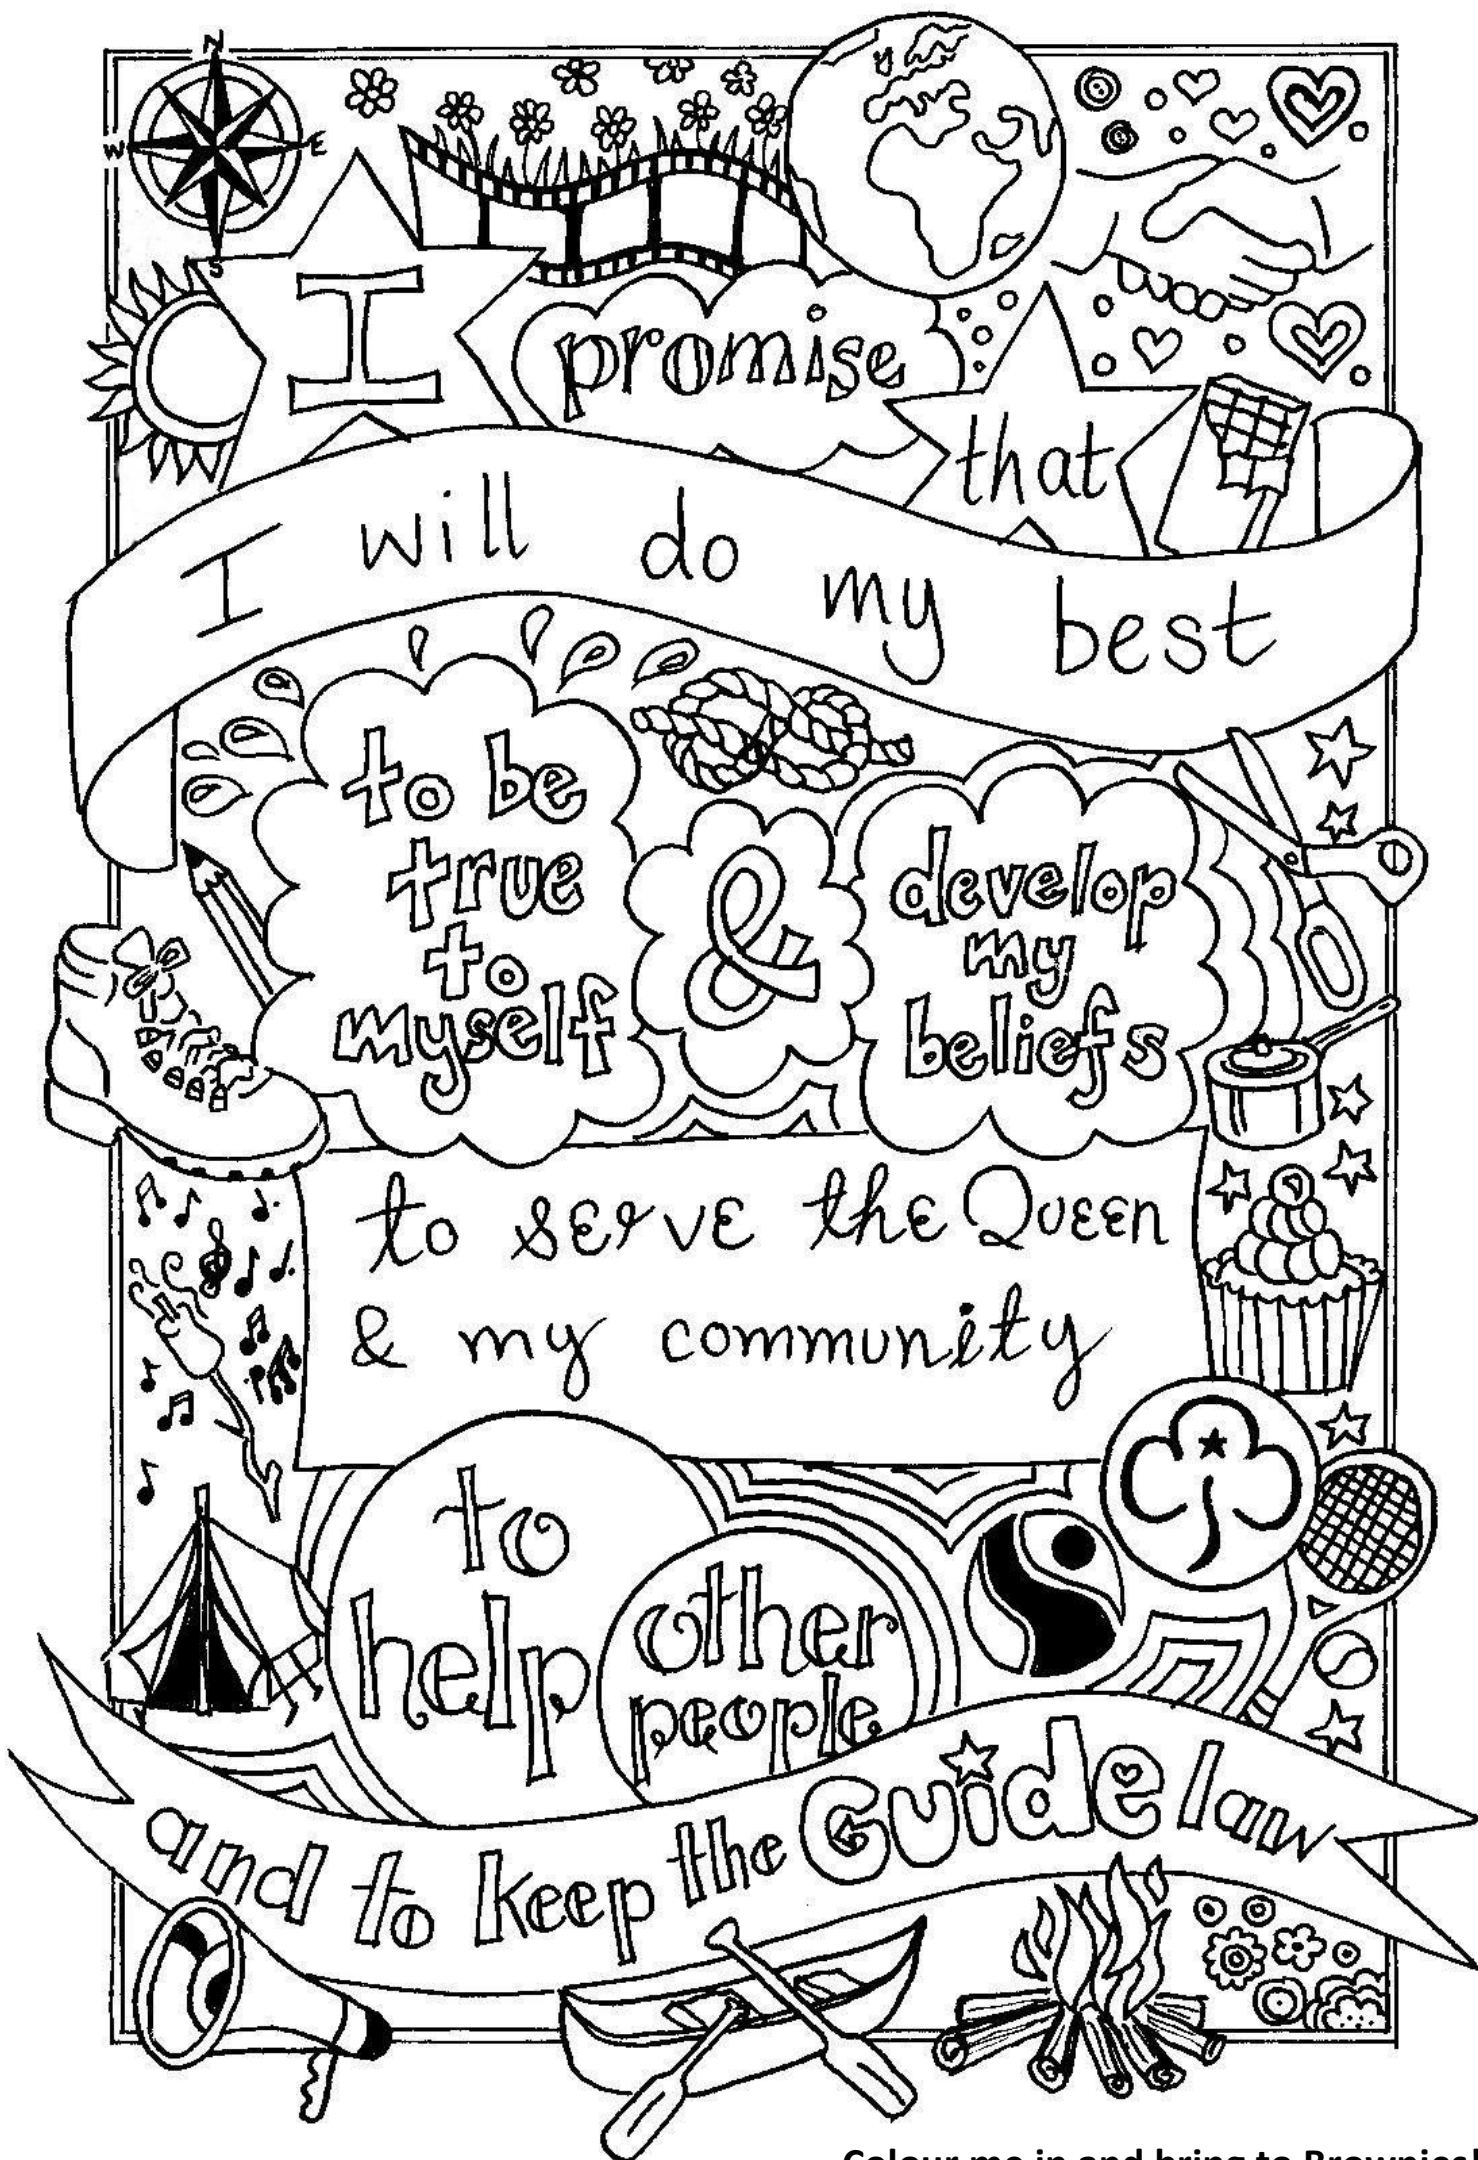 N
W E
S
I promise
that
I will do my best
to be
true
to
myself
&
develop
my
beliefs
to serve the Queen
& my community
to
help
other
people
and to keep the Guide law
Colour me in and bring to Brownies!